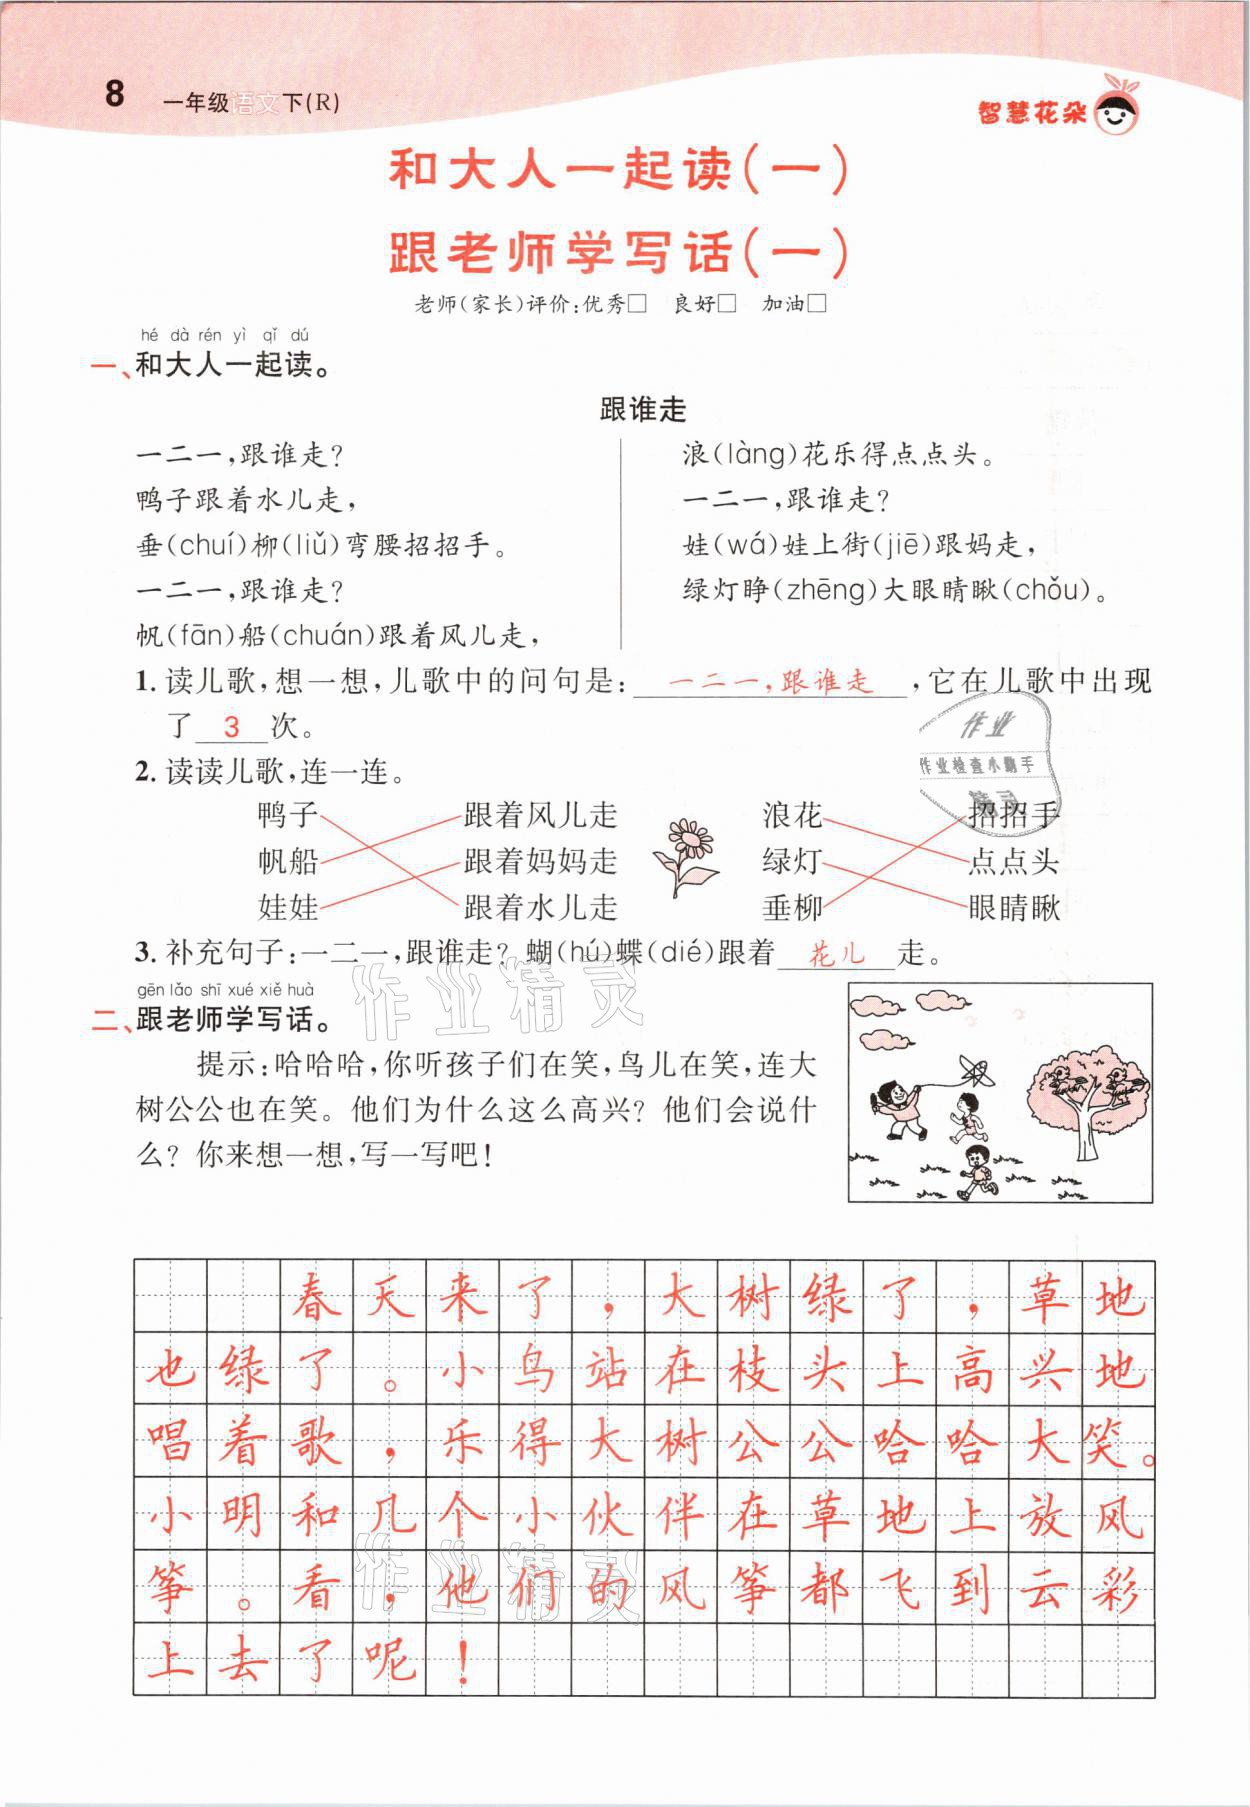 8 一年级语文下(R)
智慧花朵
和大人一起读(一)
跟老师学写话(一)
老师(家长)评价:优秀□ 良好□ 加油□
hé dà rén yì qǐ dú
一、和大人一起读。
跟谁走
一二一,跟谁走?
鸭子跟着水儿走,
垂(chuí)柳(liǔ)弯腰招招手。
一二一,跟谁走?
帆(fān)船(chuán)跟着风儿走,
浪(làng)花乐得点点头。
一二一,跟谁走?
娃(wá)娃上街(jiē)跟妈走,
绿灯睁(zhēng)大眼睛瞅(chǒu)。
1. 读儿歌,想一想,儿歌中的问句是:一二一,跟谁走,它在儿歌中出现
了 3 次。
2. 读读儿歌,连一连。
鸭子 跟着风儿走 浪花 招招手
帆船 跟着妈妈走 绿灯 点点头
娃娃 跟着水儿走 垂柳 眼睛瞅
3. 补充句子:一二一,跟谁走?蝴(hú)蝶(dié)跟着 花儿 走。
gēn lǎo shī xué xiě huà
二、跟老师学写话。
提示:哈哈哈,你听孩子们在笑,鸟儿在笑,连大
树公公也在笑。他们为什么这么高兴?他们会说什
么?你来想一想,写一写吧!
春天来了,大树绿了,草地
也绿了。小鸟站在枝头上高兴地
唱着歌,乐得大树公公哈哈大笑。
小明和几个小伙伴在草地上放风
筝。看,他们的风筝都飞到云彩
上去了呢!
作业
作业检查小助手
精灵
作业精灵
作业精灵